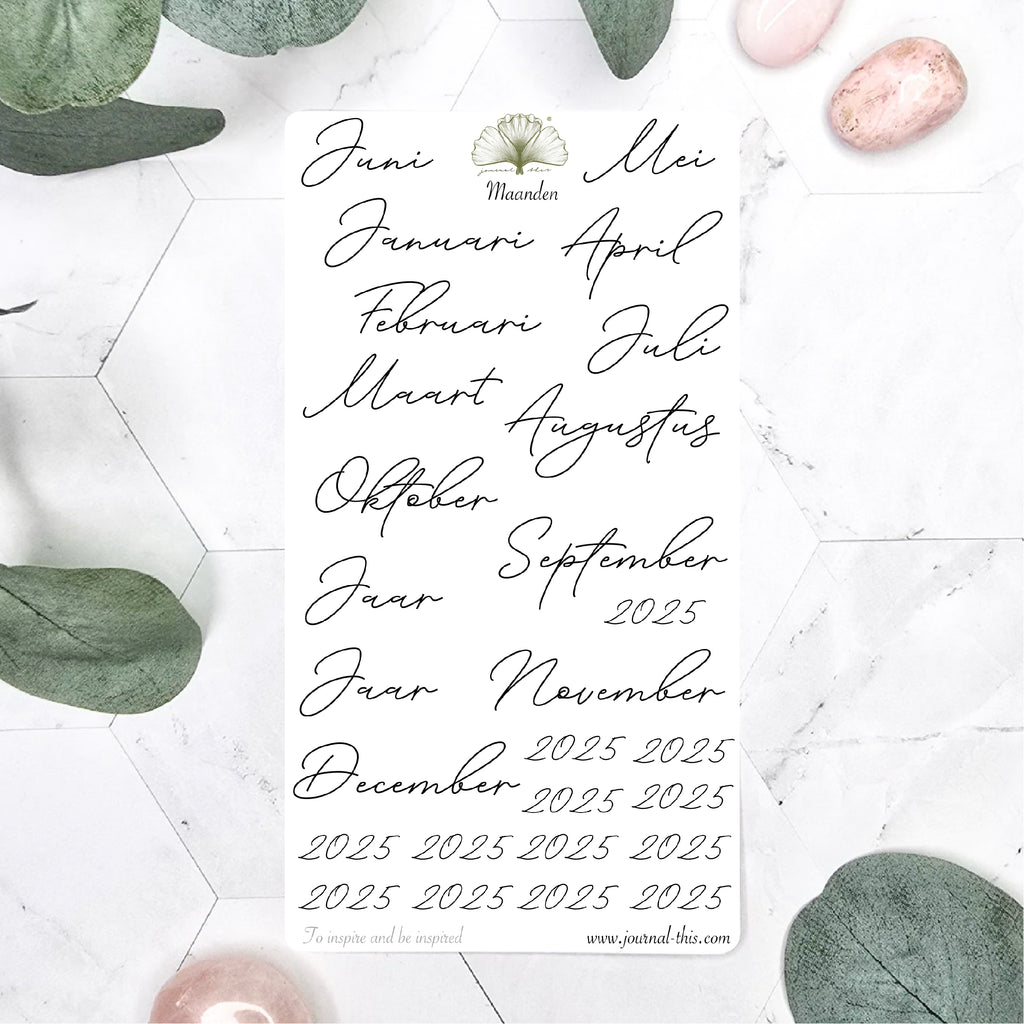 Juni
journal this
Mei
Maanden
Januari
April
Februari
Juli
Maart
Augustus
Oktober
September
Jaar
2025
Jaar
November
December
2025 2025
2025 2025
2025 2025 2025 2025
2025 2025 2025 2025
To inspire and be inspired
www.journal-this.com